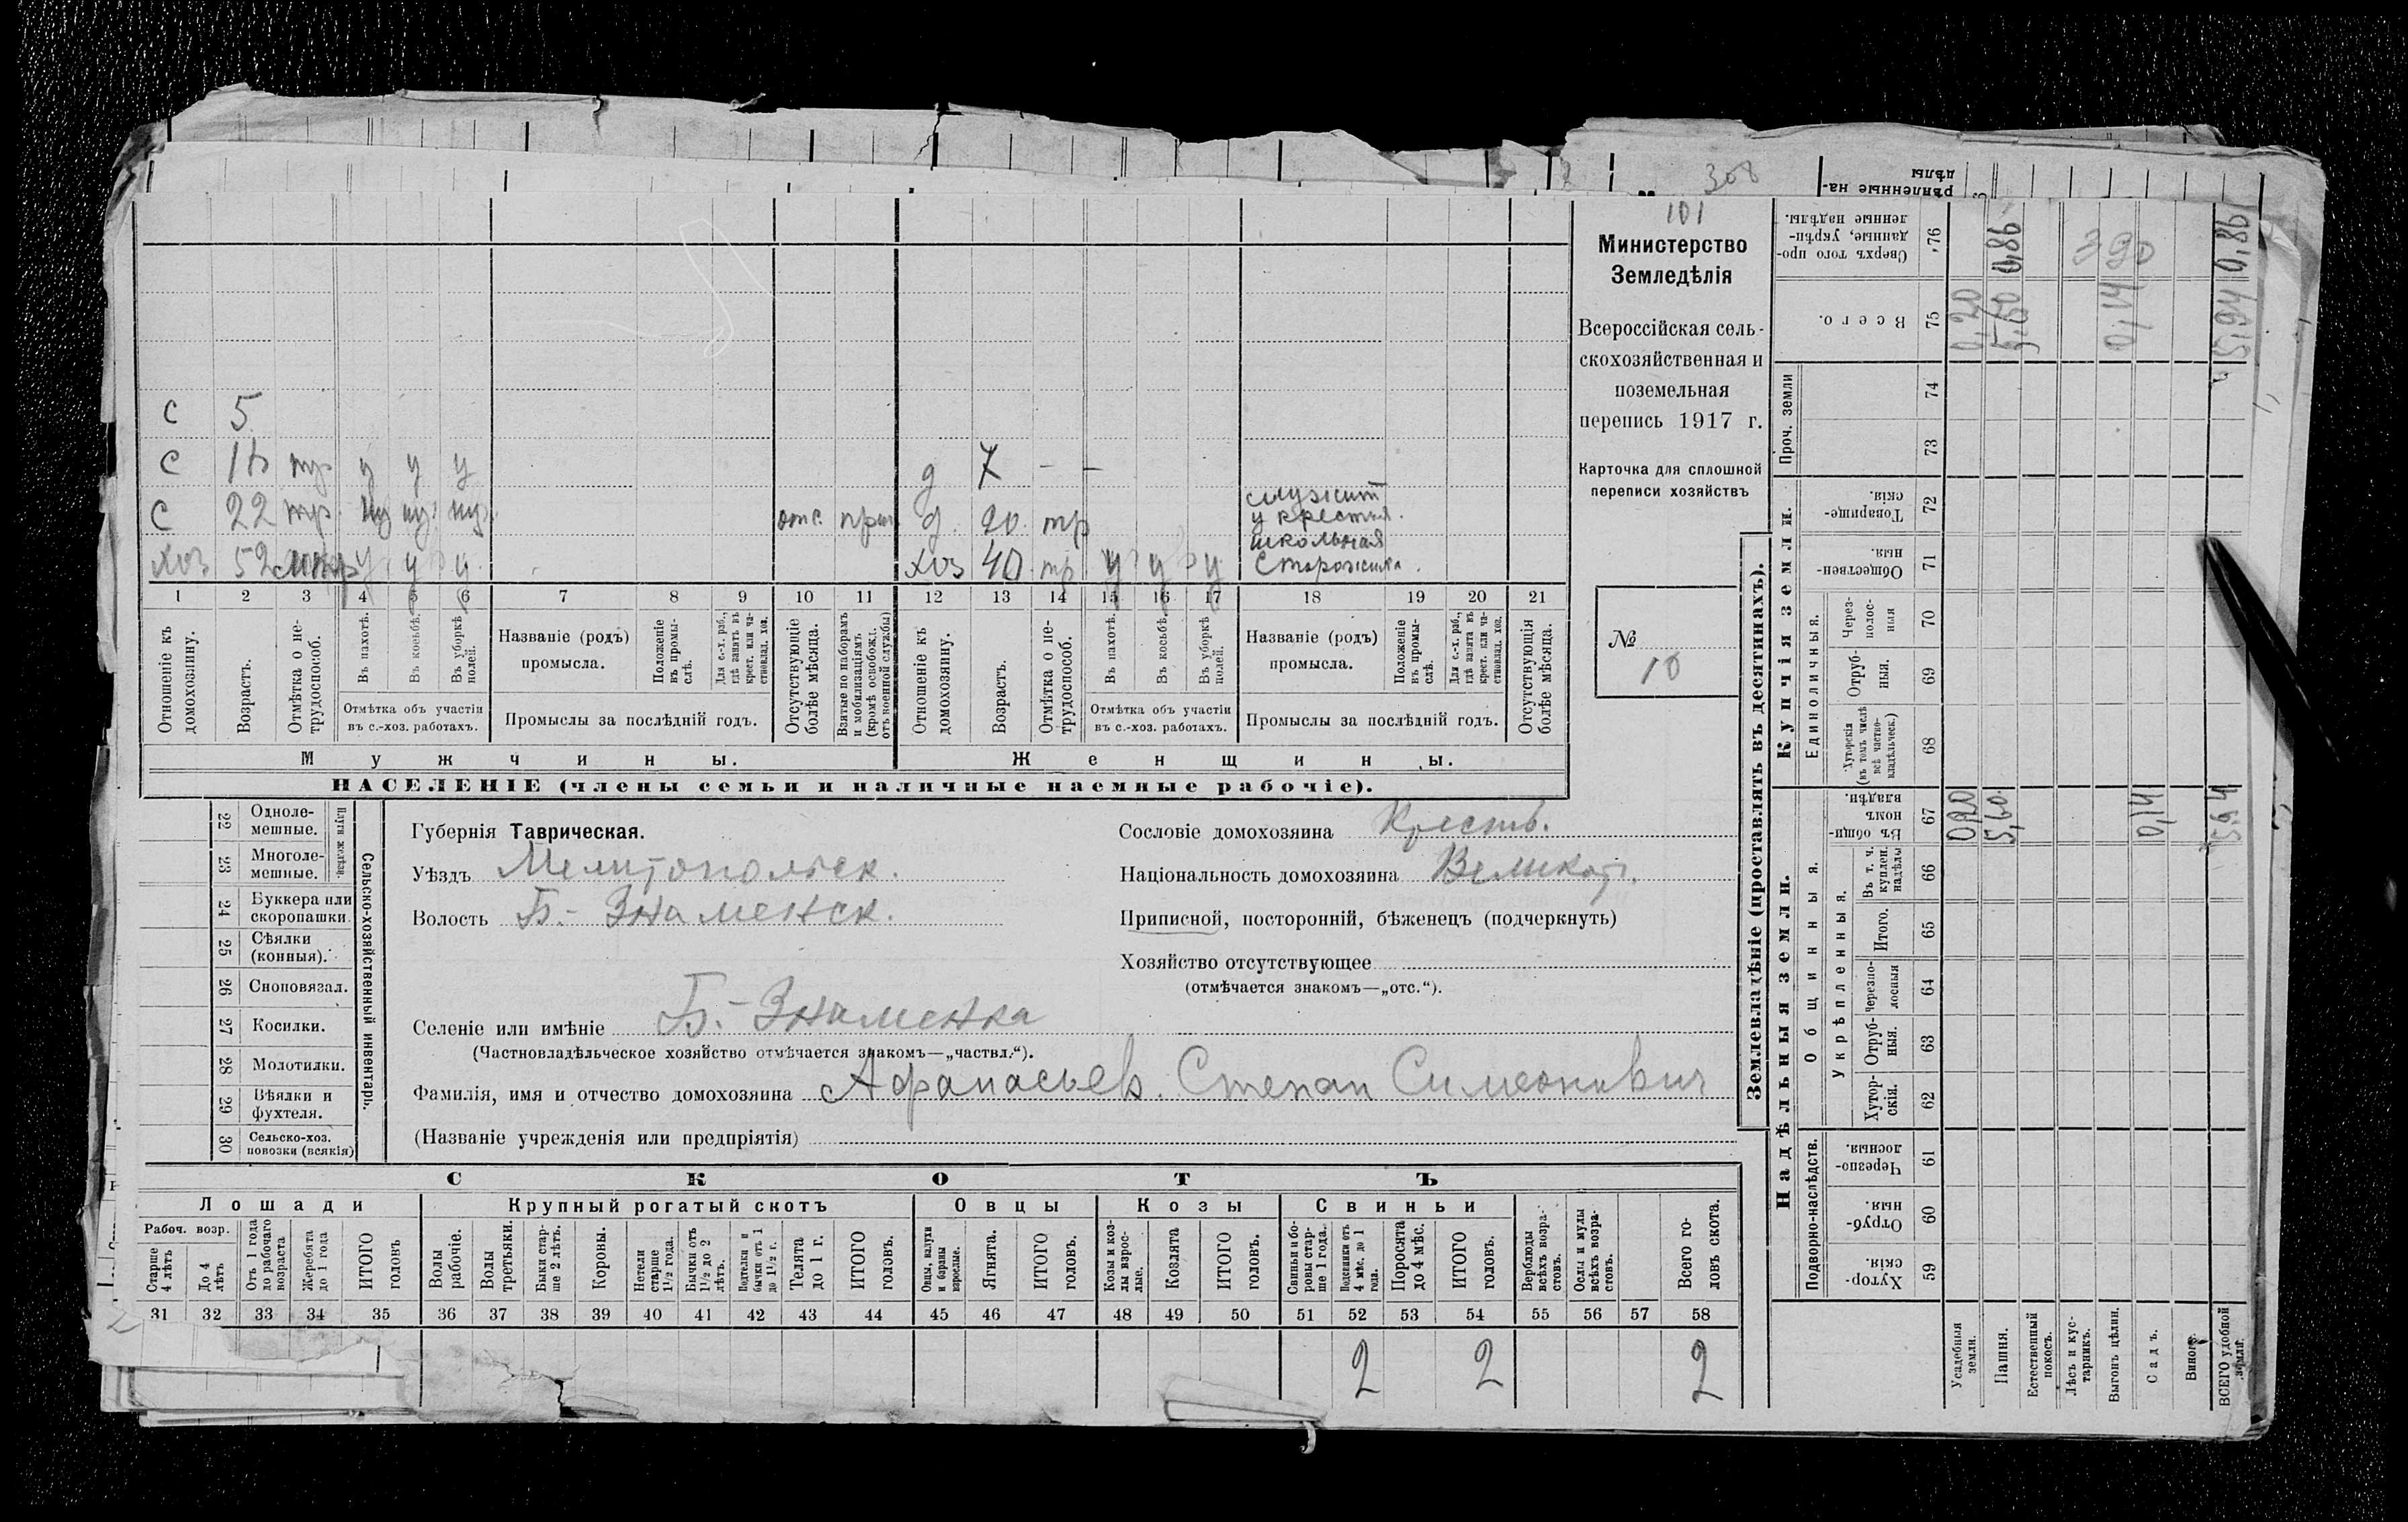 308
101
Министерство
Земледѣлія
Всероссійская сель-
скохозяйственная и
поземельная
перепись 1917 г.
Карточка для сплошной
переписи хозяйствъ
№
10
С 5
С 18 тр у у у д 7 – –
служит
С 22 тр. отс. д. 20 тр у крестья.
школьная
хоз 52 у у у хоз 40 тр у у у Сторожиха.
1 2 3 4 5 6 7 8 9 10 11 12 13 14 15 16 17 18 19 20 21
Отношеніе къ домохозяину.
Возрастъ.
Отмѣтка о не-трудоспособ.
Въ пахотѣ.
Въ косьбѣ.
Въ уборкѣ полей.
Отмѣтка объ участіи въ с.-хоз. работахъ.
Названіе (родъ) промысла.
Положеніе въ промы-слѣ.
Для с.-х. раб., гдѣ занятъ въ крест. или ча-стновлад. хоз.
Промыслы за послѣдній годъ.
Отсутствующіе болѣе мѣсяца.
Взятые по наборамъ и мобилизаціямъ (кромѣ освобожд. отъ военной службы)
Отношеніе къ домохозяину.
Возрастъ.
Отмѣтка о не-трудоспособ.
Въ пахотѣ.
Въ косьбѣ.
Въ уборкѣ полей.
Отмѣтка объ участіи въ с.-хоз. работахъ.
Названіе (родъ) промысла.
Положеніе въ промы-слѣ.
Для с.-х. раб., гдѣ занята въ крест. или ча-стновлад. хоз.
Промыслы за послѣдній годъ.
Отсутствующія болѣе мѣсяца.
Мужчины. Женщины.
НАСЕЛЕНІЕ (члены семьи и наличные наемные рабочіе).
22 Одноле-мешные.
23 Многоле-мешные.
Плуги желѣзн.
24 Буккера или скоропашки.
25 Сѣялки (конныя).
26 Сноповязал.
27 Косилки.
28 Молотилки.
29 Вѣялки и фухтеля.
30 Сельско-хоз. повозки (всякія)
Сельско-хозяйственный инвентарь.
Губернія Таврическая.
Уѣздъ Мелитопольск.
Волость Б.-Знаменск.
Селеніе или имѣніе Б.-Знаменка
(Частновладѣльческое хозяйство отмѣчается знакомъ—„частвл.“).
Фамилія, имя и отчество домохозяина Афанасьев. Степан Симеонович
(Названіе учрежденія или предпріятія)
Сословіе домохозяина Крестъ.
Національность домохозяина Великор.
Приписной, посторонній, бѣженец (подчеркнуть)
Хозяйство отсутствующее
(отмѣчается знакомъ—„отс.“).
СКОТЪ
Лошади Крупный рогатый скотъ Овцы Козы Свиньи
Рабоч. возр.
Старше 4 лѣтъ
До 4 лѣтъ
Отъ 1 года до рабочаго возраста
Жеребята до 1 года
ИТОГО головъ
Волы рабочіе.
Волы третьяки.
Быки стар-ше 2 лѣтъ.
Коровы.
Нетели старше 1½ года.
Бычки отъ 1½ до 2 лѣтъ.
бычки отъ 1 до 1½ г.
Телята до 1 г.
ИТОГО головъ.
Овцы, валухи и бараны взрослые.
Ягнята.
ИТОГО головъ.
Козы и коз-лы взрос-лые.
Козлята
ИТОГО головъ.
Свиньи и бо-ровы стар-ше 1 года.
Подсвинки отъ 4 мѣс. до 1 года.
Поросята до 4 мѣс.
ИТОГО головъ.
Верблюды всѣхъ возра-стовъ.
Ослы и мулы всѣхъ возра-стовъ.
Всего го-ловъ скота.
31 32 33 34 35 36 37 38 39 40 41 42 43 44 45 46 47 48 49 50 51 52 53 54 55 56 57 58
2 2 2
Землевладѣніе (проставлять въ десятинахъ).
Надѣльныя земли.
Купчія земли.
Проч. земли
Подворно-наслѣдств.
Общинныя.
Укрѣпленныя.
Единоличныя.
Сверхъ того про-данные, укрѣп-ленные надѣлы. 76 0,86 0,86
Всего. 75 0,20 5,60 0,14 5,94
74
73
Товарище-скія. 72
Обществен-ныя. 71
Через-полос-ныя 70
Отруб-ныя. 69
Хуторскія (въ томъ числѣ всѣ частно-владѣльческ.) 68
Въ общи-номъ владѣн. 67 0,20 5,60 0,14 5,94
Въ т. ч. куплен. надѣлы 66
Итого. 65
Черезпо-лосныя 64
Отруб-ныя. 63
Хутор-скія. 62
Черезпо-лосныя. 61
Отруб-ныя. 60
Хутор-скія. 59
Усадебныя земли.
Пашня.
Естественный покосъ.
Лѣсъ и кус-тарникъ.
Выгонъ цѣлин.
Садъ.
ВСЕГО удобной земли.